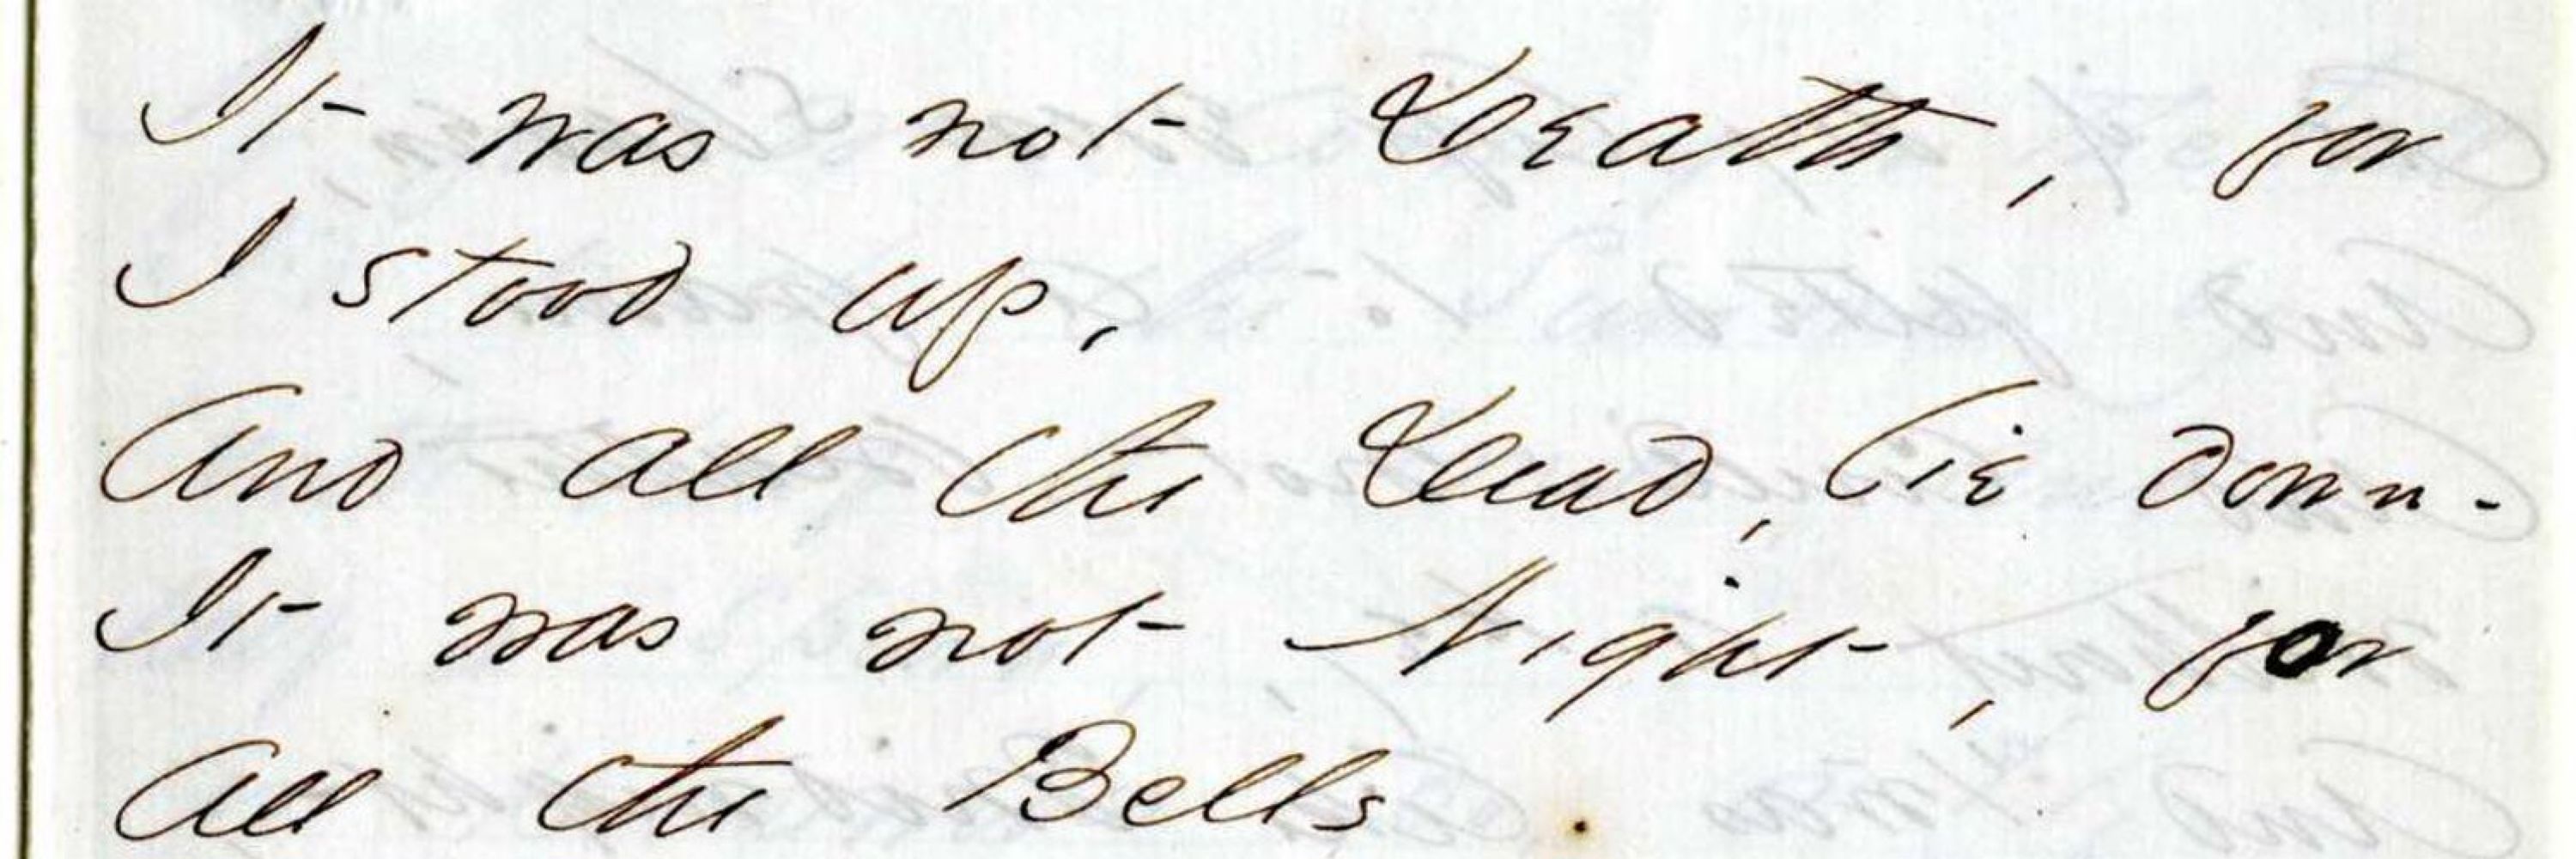 It was not Death, for
I stood up,
And all the Dead, lie down -
It was not Night, for
All the Bells